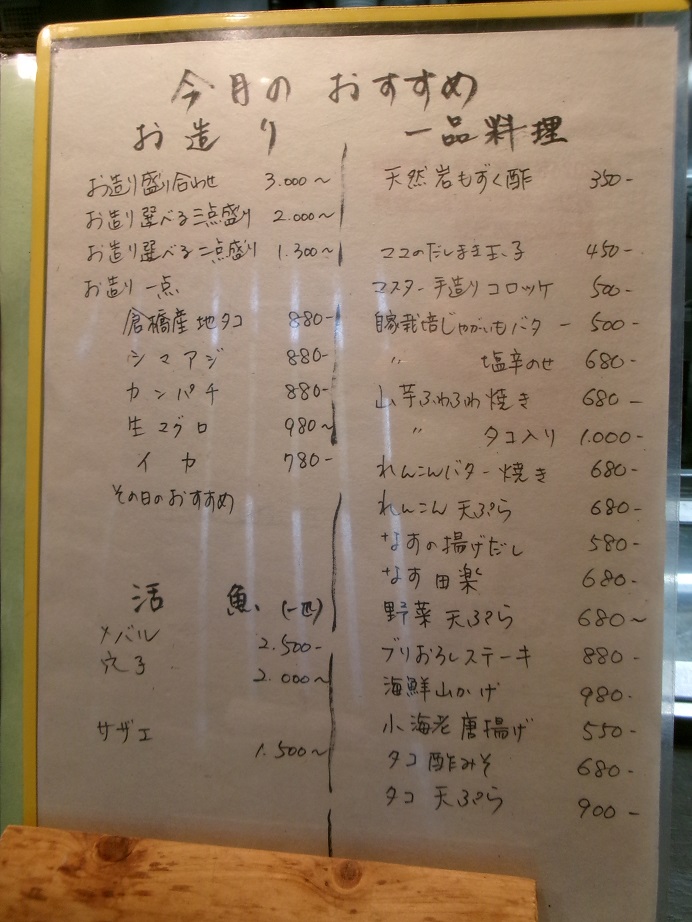 今月のおすすめ
お造り
お造り盛り合わせ 3.000〜
お造り選べる三点盛り 2.000〜
お造り選べる二点盛り 1.300〜
お造り一点
倉橋産地タコ 880-
シマアジ 880-
カンパチ 880-
生マグロ 980〜
イカ 780-
その日のおすすめ
活魚(一匹)
メバル 2.500-
穴子 2.000〜
サザエ 1.500〜
一品料理
天然岩もずく酢 350-
ママのだしまき玉子 450-
マスター手造りコロッケ 500-
自家栽培じゃがいもバター 500-
〃 塩辛のせ 680-
山芋ふわふわ焼き 680-
〃 タコ入り 1.000-
れんこんバター焼き 680-
れんこん天ぷら 680-
なすの揚げだし 580-
なす田楽 680-
野菜天ぷら 680〜
ブリおろしステーキ 880-
海鮮山かけ 980-
小海老唐揚げ 550-
タコ酢みそ 680-
タコ天ぷら 900-